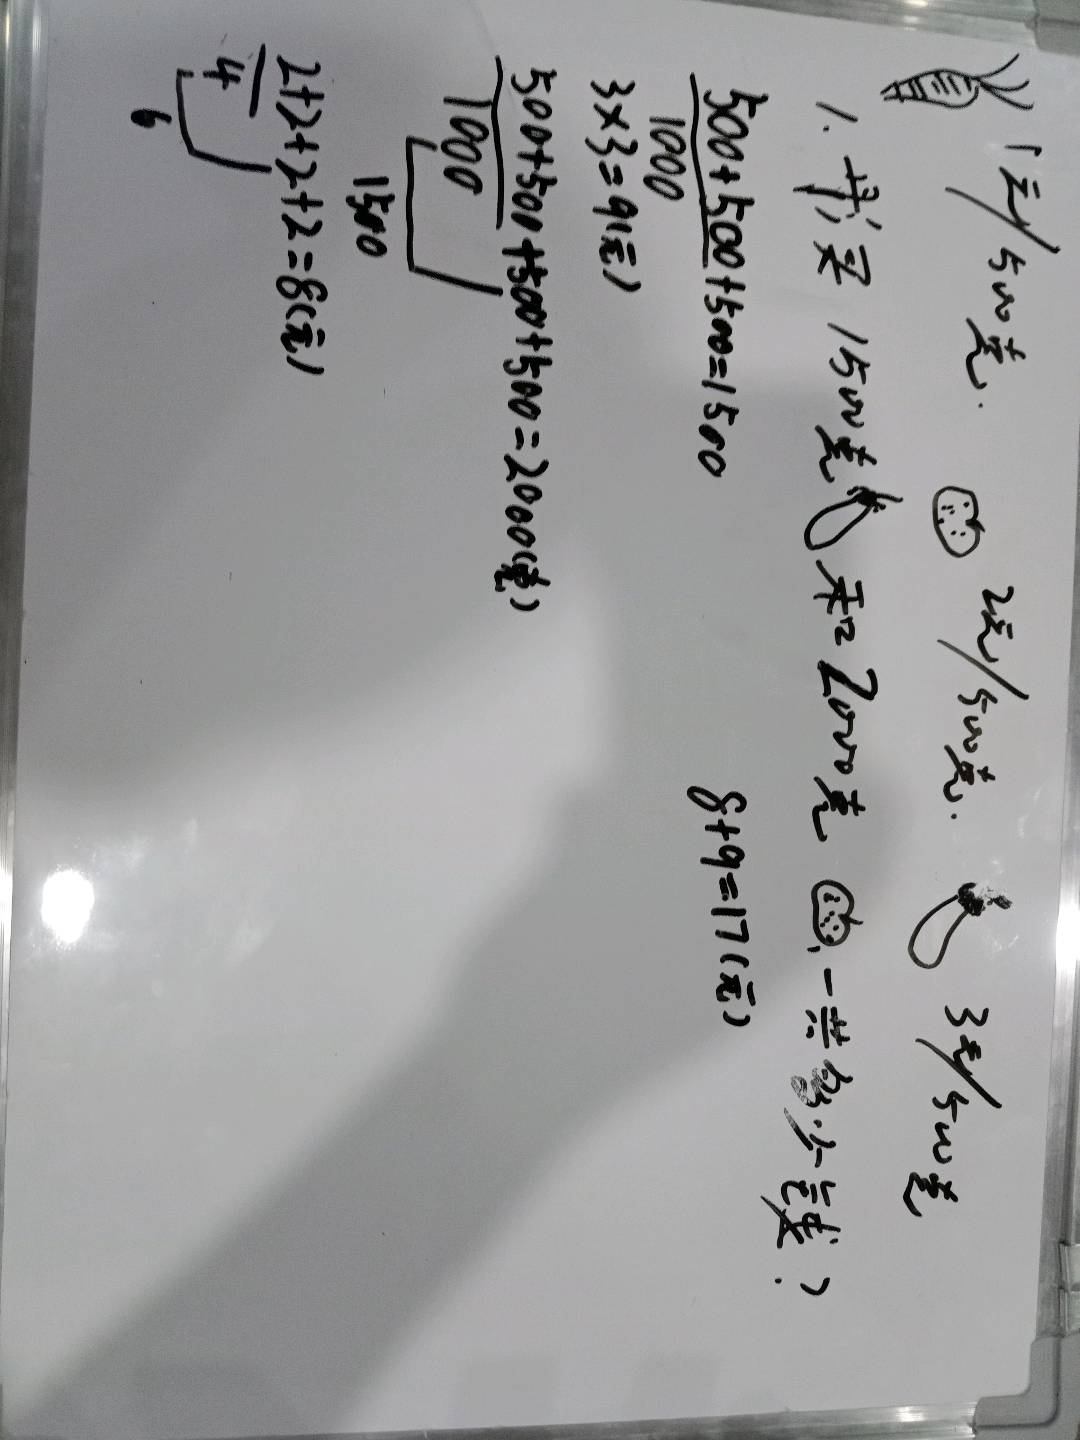 1元/500克. 2元/500克. 3元/500克
1. 买 1500克 和 2000克 , 一共多少钱?
500+500+500=1500
1000
8+9=17(元)
3×3=9(元)
500+500+500+500=2000(克)
1000
1500
2+2+2+2=8(元)
4
6